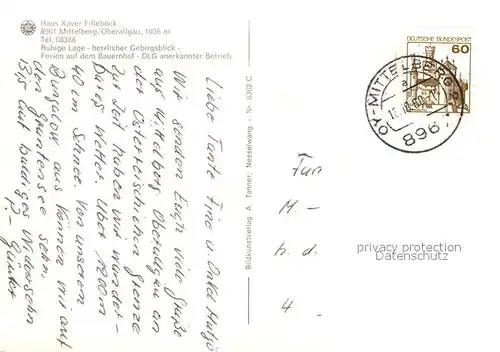 Haus Xaver Filleböck
8961 Mittelberg/Oberallgäu, 1036 m
Tel. 08366
Ruhige Lage - herrlicher Gebirgsblick -
Ferien auf dem Bauernhof - DLG anerkannter Betrieb
Liebe Tante Trie u. Onkel
Wir senden Euch viele Grüße
aus Mittelberg Oberallgäu an
der Österreichischen Grenze
zur Zeit haben wir wunder-
bares Wetter. Über 1200m
40 cm Schnee. Von unserem
Bungalow aus können wir auf
den Grüntensee sehn.
Bis auf baldiges Wiedersehn
Bildkunstverlag A. Tanner, Nesselwang - Nr. 6362 C
DEUTSCHE BUNDESPOST
60
OY-MITTELBERG 2
a
8967
Fam
M. -
h. d.
4 -
privacy protection
Datenschutz